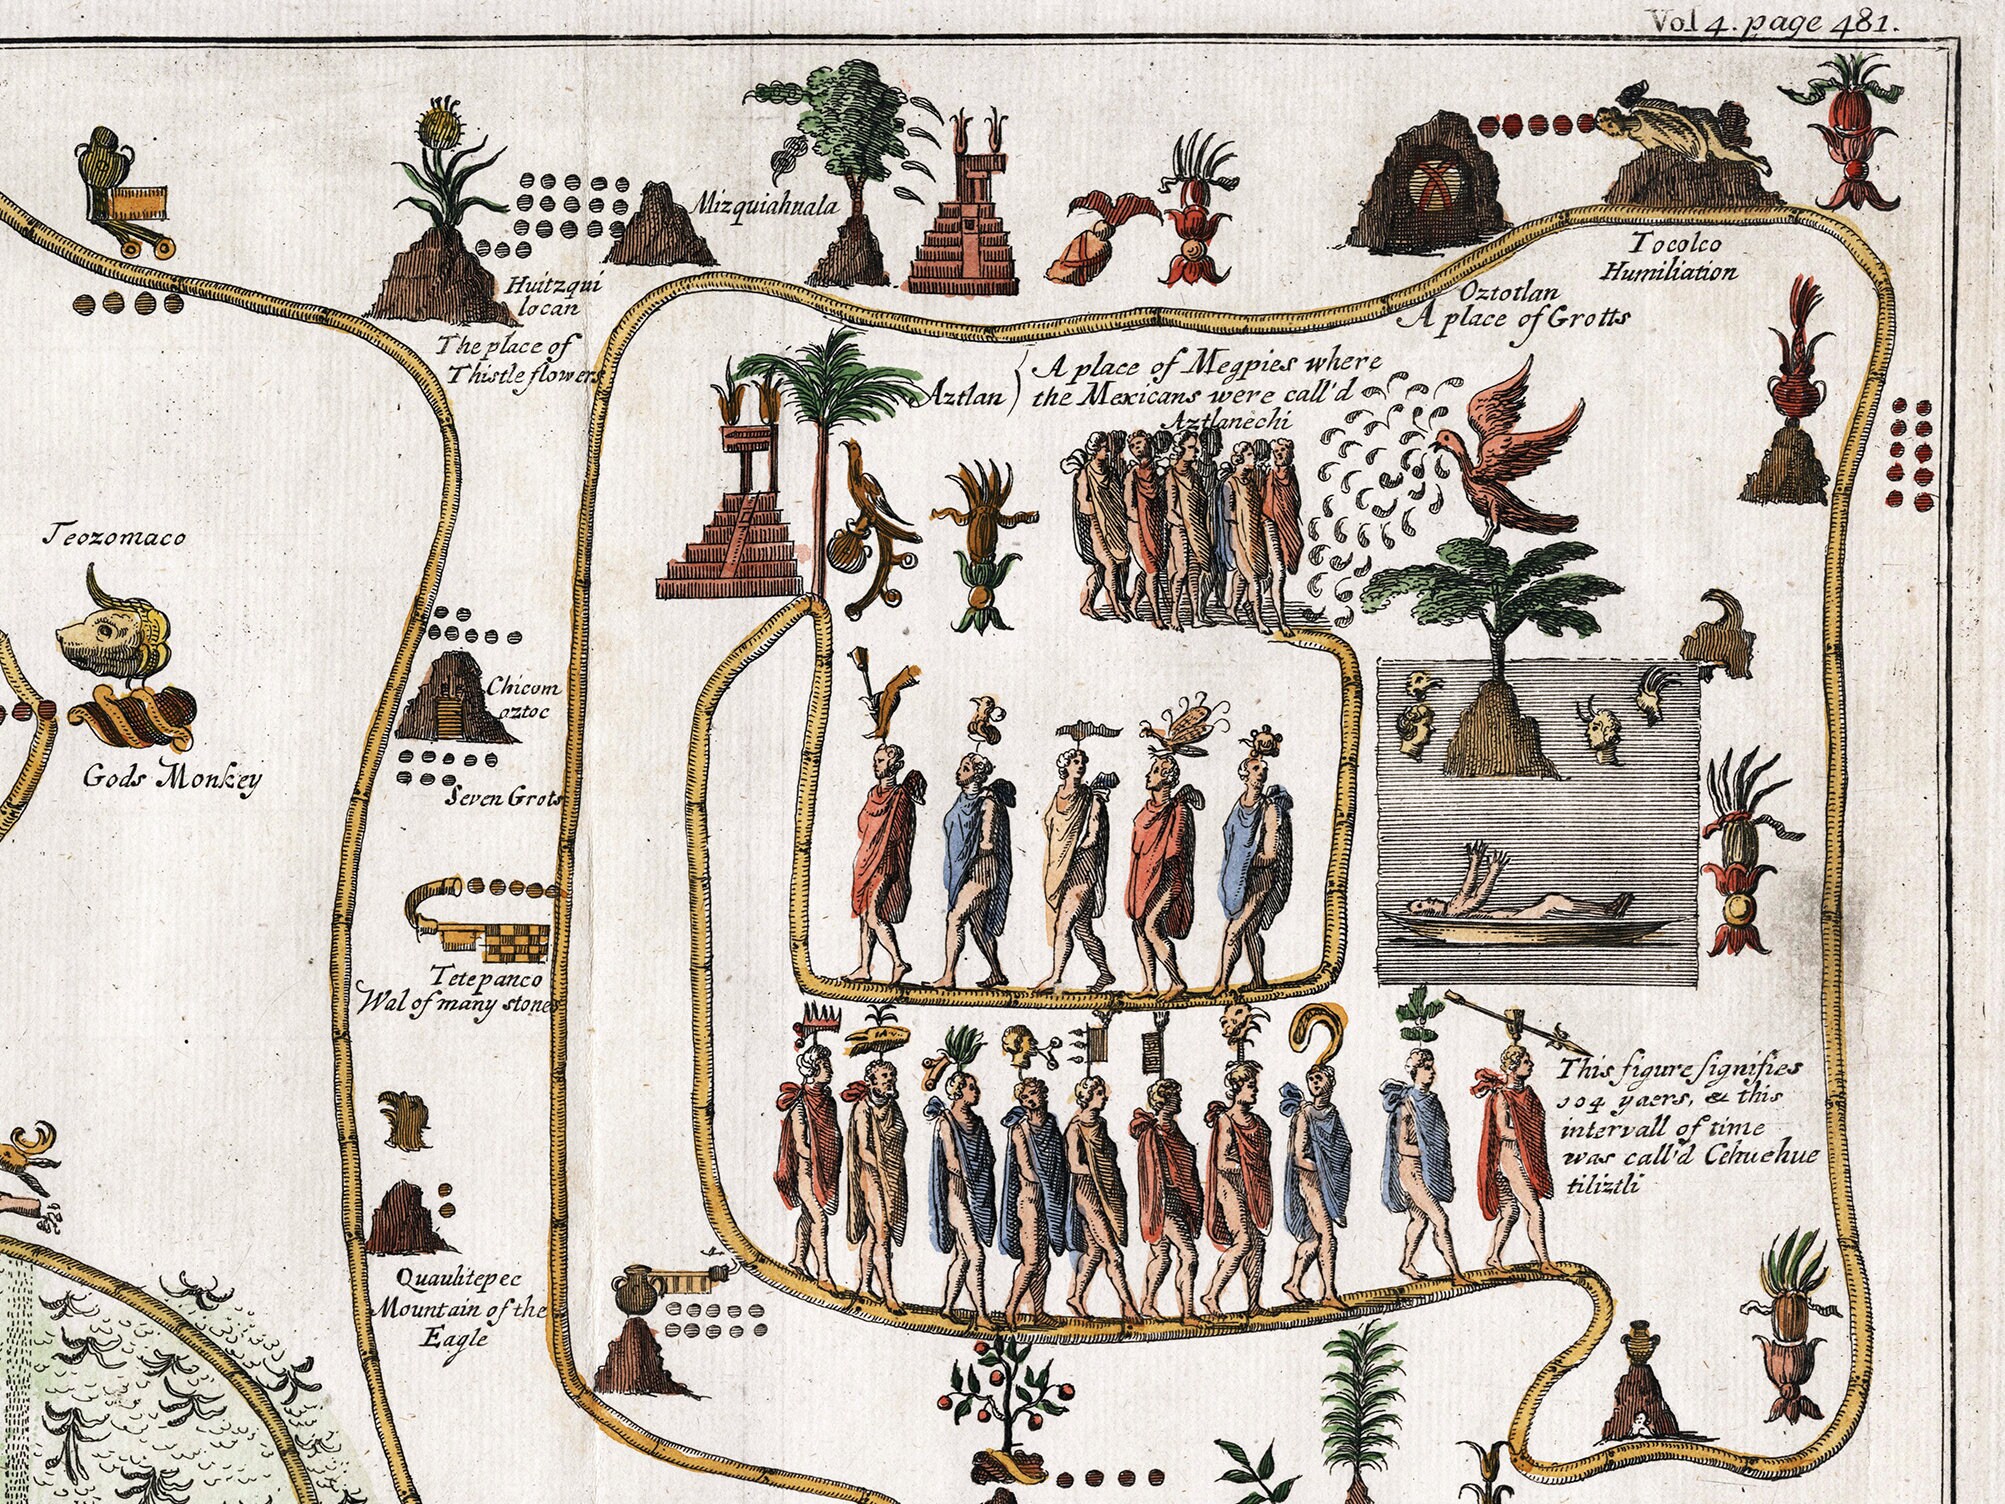 Vol 4. page 481.
Mizquiahnala
Huitzqui
locan
The place of
Thistle flowers
Tocolco
Humiliation
Oztotlan
A place of Grotts
Aztlan
A place of Megpies where
the Mexicans were call'd
Aztlanechi
Teozomaco
Gods Monkey
Chicom
aztoc
Seven Grots
Tetepanco
Wal of many stones
This figure signifies
104 yaers, & this
intervall of time
was call'd Cehuehue
tiliztli
Quauhtepec
Mountain of the
Eagle